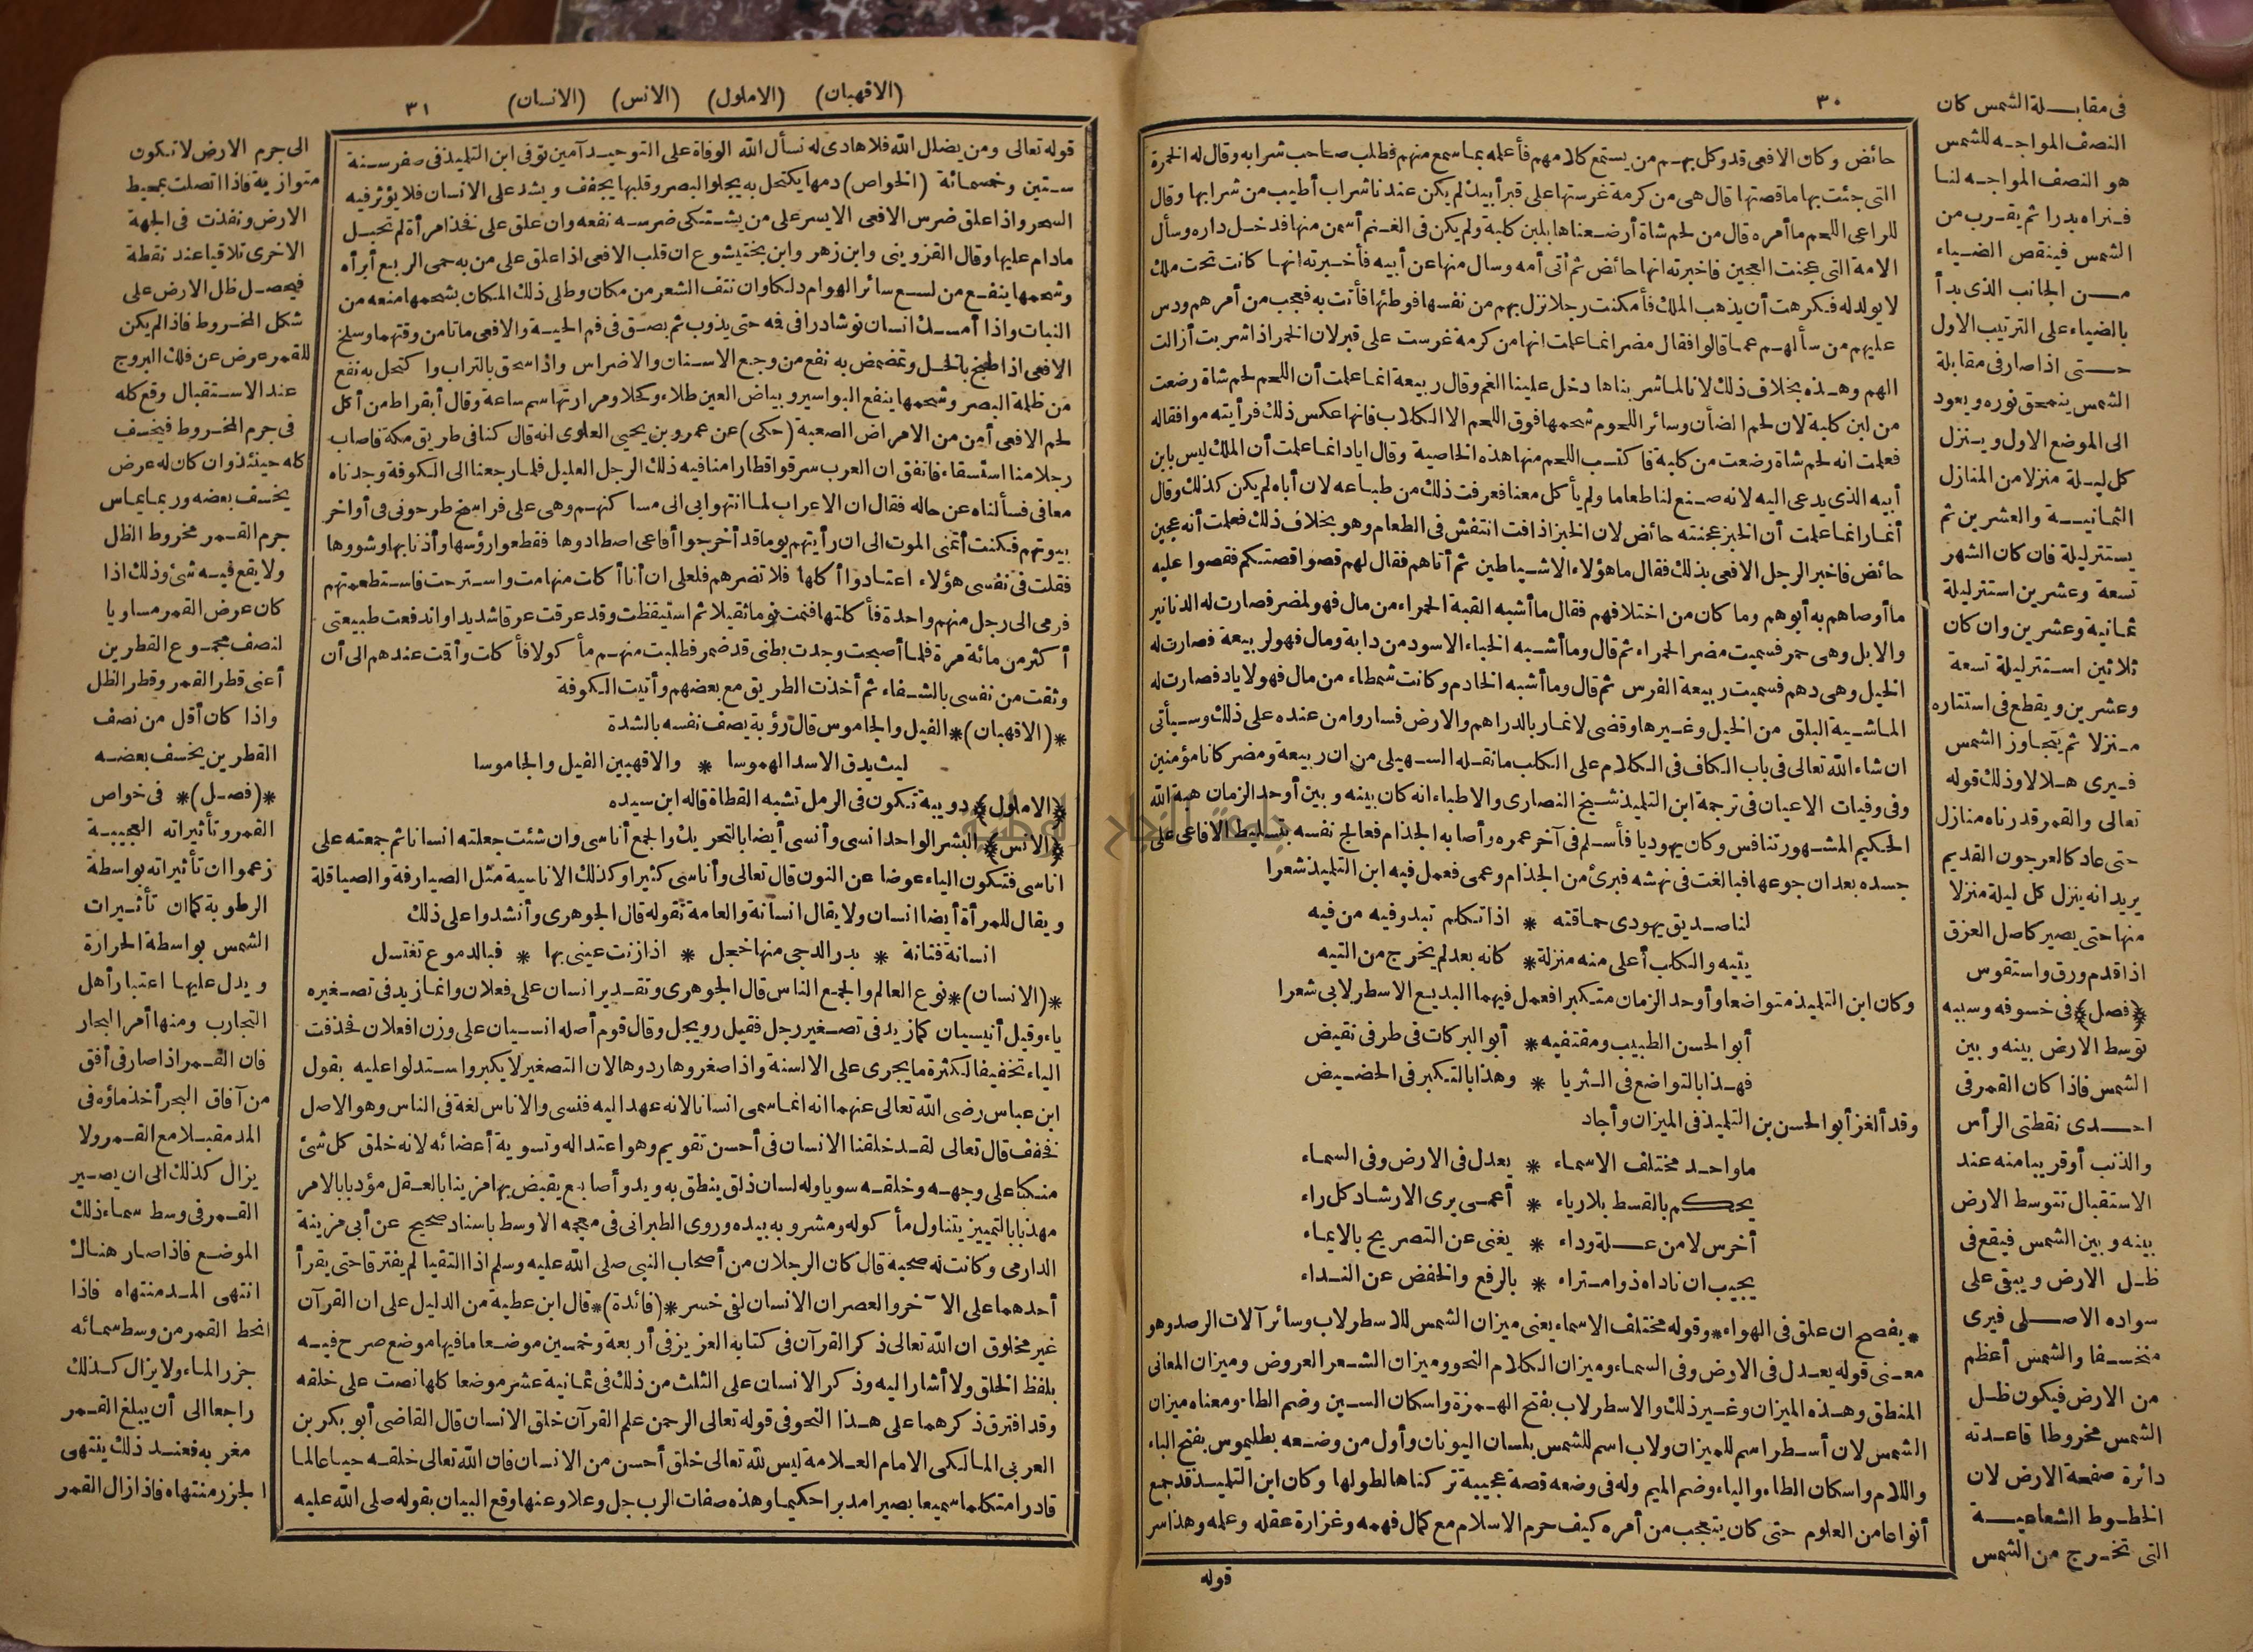 ٣٠
حائض وكان الافعى قد وكل بهم من يستمع كلامهم فأعلمه بما سمع منهم فطلب صاحب شرابه وقال له الخمرة
التى جئت بها ما قصتها قال هى من كرمة غرستها على قبر أبيك لم يكن عندنا شراب أطيب من شرابها وقال
للراعى اللحم ما أمره قال من لحم شاة أرضعناها بلبن كلبة ولم يكن فى الغنم أسمن منها فدخل داره وسأل
الامة التى عجنت العجين فاخبرته انها حائض ثم أتى أمه وسال منها عن أبيه فأخبرته انها كانت تحت ملك
لا يولد له فكرهت أن يذهب الملك فأمكنت رجلا نزل بهم من نفسها فوطئها فأتت به فعجب من أمرهم ودس
عليهم من سألهم عما قالوا فقال مضر انما علمت انها من كرمة غرست على قبر لان الخمر اذا شربت أزالت
الهم وهذه بخلاف ذلك لانا لما شربناها دخل علينا الغم وقال ربيعة انما علمت أن اللحم لحم شاة رضعت
من لبن كلبة لان لحم الضأن وسائر اللحوم شحمها فوق اللحم الا الكلاب فانها عكس ذلك فرأيته موافقا له
فعلمت انه لحم شاة رضعت من كلبة فاكتسب اللحم منها هذه الخاصية وقال اياد انما علمت أن الملك ليس بابن
أبيه الذى يدعى اليه لانه صنع لنا طعاما ولم يأكل معنا فعرفت ذلك من طباعه لان أباه لم يكن كذلك وقال
أنمار انما علمت أن الخبز عجنته حائض لان الخبز اذا فت انتفش فى الطعام وهو بخلاف ذلك فعلمت أنه عجين
حائض فاخبر الرجل الافعى بذلك فقال ما هؤلاء الا شياطين ثم أتاهم فقال لهم قصوا قصتكم فقصوا عليه
ما أوصاهم به أبوهم وما كان من اختلافهم فقال ما أشبه القبة الحمراء من مال فهو لمضر فصارت له الدنانير
والابل وهى حمر فسميت مضر الحمراء ثم قال وما أشبه الخباء الاسود من دابة ومال فهو لربيعة فصارت له
الخيل وهى دهم فسميت ربيعة الفرس ثم قال وما أشبه الخادم وكانت شمطاء من مال فهو لاياد فصارت له
الماشية البلق من الخيل وغيرها وقضى لانمار بالدراهم والارض فساروا من عنده على ذلك وسيأتى
ان شاء الله تعالى فى باب الكاف فى الكلام على الكلب ما نقله السهيلى من ان ربيعة ومضر كانا مؤمنين
وفى وفيات الاعيان فى ترجمة ابن التلميذ شيخ النصارى والاطباء انه كان بينه وبين أوحد الزمان هبة الله
الحكيم المشهور تنافس وكان يهوديا فأسلم فى آخر عمره وأصابه الجذام فعالج نفسه بتسليط الافاعى على
جسده بعد ان جوعها فبالغت فى نهشه فبرئ من الجذام وعمى فعمل فيه ابن التلميذ شعرا
لنا صديق يهودى حماقته * اذا تكلم تبدو فيه من فيه
يتيه والكلب أعلى منه منزلة * كانه بعد لم يخرج من التيه
وكان ابن التلميذ متواضعا وأوحد الزمان متكبرا فعمل فيهما البديع الاسطرلابى شعرا
أبو الحسن الطبيب ومقتفيه * أبو البركات فى طرفى نقيض
فهذا بالتواضع فى الثريا * وهذا بالتكبر فى الحضيض
وقد ألغز أبو الحسن بن التلميذ فى الميزان وأجاد
ما واحد مختلف الاسماء * يعدل فى الارض وفى السماء
يحكم بالقسط بلا رياء * أعمى يرى الارشاد كل راء
أخرس لا من علة وداء * يغنى عن التصريح بالايماء
يجيب ان ناداه ذو امتراء * بالرفع والخفض عن النداء
* يفصح ان علق فى الهواء * وقوله مختلف الاسماء يعنى ميزان الشمس للاسطرلاب وسائر آلات الرصد وهو
معنى قوله يعدل فى الارض وفى السماء وميزان الكلام النحو وميزان الشعر العروض وميزان المعانى
المنطق وهذه الميزان وغير ذلك والاسطرلاب بفتح الهمزة واسكان السين وضم الطاء ومعناه ميزان
الشمس لان أسطر اسم للميزان ولاب اسم للشمس بلسان اليونان وأول من وضعه بطليموس بفتح الباء
واللام واسكان الطاء والياء وضم الميم وله فى وضعه قصة عجيبة تركناها لطولها وكان ابن التلميذ قد جمع
أنواعا من العلوم حتى كان يتعجب من أمره كيف حرم الاسلام مع كمال فهمه وغزارة عقله وعلمه وهذا سر
قوله
فى مقابلة الشمس كان
النصف المواجه للشمس
هو النصف المواجه لنا
فنراه بدرا ثم يقرب من
الشمس فينقص الضياء
من الجانب الذى بدأ
بالضياء على الترتيب الاول
حتى اذا صار فى مقابلة
الشمس ينمحق نوره ويعود
الى الموضع الاول وينزل
كل ليلة منزلا من المنازل
الثمانية والعشرين ثم
يستتر ليلة فان كان الشهر
تسعة وعشرين استتر ليلة
ثمانية وعشرين وان كان
ثلاثين استتر ليلة تسعة
وعشرين ويقطع فى استتاره
منزلا ثم يتجاوز الشمس
فيرى هلالا وذلك قوله
تعالى والقمر قدرناه منازل
حتى عاد كالعرجون القديم
يريد انه ينزل كل ليلة منزلا
منها حتى يصير كاصل العزق
اذا قدم ورق واستقوس
(فصل) فى خسوفه وسببه
توسط الارض بينه وبين
الشمس فاذا كان القمر فى
احدى نقطتى الرأس
والذنب أو قريبا منه عند
الاستقبال تتوسط الارض
بينه وبين الشمس فيقع فى
ظل الارض ويبقى على
سواده الاصلى فيرى
منخسفا والشمس أعظم
من الارض فيكون ظل
الشمس مخروطا قاعدته
دائرة صفحة الارض لان
الخطوط الشعاعية
التى تخرج من الشمس
(الاقهبان) (الاملول) (الانس) (الانسان) ٣١
قوله تعالى ومن يضلل الله فلا هادى له نسأل الله الوفاة على التوحيد آمين توفى ابن التلميذ فى صفر سنة
ستين وخمسمائة (الخواص) دمها يكتحل به يجلو البصر وقلبها يجفف ويشد على الانسان فلا يؤثر فيه
السحر واذا علق ضرس الافعى الايسر على من يشتكى ضرسه نفعه وان علق على فخذ امرأة لم تحبل
مادام عليها وقال القزوينى وابن زهر وابن بختيشوع ان قلب الافعى اذا علق على من به حمى الربع أبرأه
وشحمها ينفع من لسع سائر الهوام دلكا وان نتف الشعر من مكان وطلى ذلك المكان بشحمها منعه من
النبات واذا أمسك انسان نوشادرا فى فيه حتى يذوب ثم بصق فى فم الحية والافعى ماتا من وقتهما وسلخ
الافعى اذا طبخ بالخل وتمضمض به نفع من وجع الاسنان والاضراس واذا سحق بالتراب واكتحل به نفع
من ظلمة البصر وشحمها ينفع البواسير وبياض العين طلاء وكحلا ومرارتها سم ساعة وقال أبقراط من أكل
لحم الافعى أمن من الامراض الصعبة (حكى) عن عمرو بن يحيى العلوى انه قال كنا فى طريق مكة فاصاب
رجلا منا استسقاء فاتفق ان العرب سرقوا قطارا منا فيه ذلك الرجل العليل فلما رجعنا الى الكوفة وجدناه
معافى فسألناه عن حاله فقال ان الاعراب لما انتهوا بى الى مساكنهم وهى على فراسخ طرحونى فى أواخر
بيوتهم فكنت أتمنى الموت الى ان رأيتهم يوما قد أخرجوا أفاعى اصطادوها فقطعوا رؤسها وأذنابها وشووها
فقلت فى نفسى هؤلاء اعتادوا أكلها فلا تضرهم فلعلى ان أنا أكلت منها مت واسترحت فاستطعمتهم
فرمى الى رجل منهم واحدة فأكلتها فنمت نوما ثقيلا ثم استيقظت وقد عرقت عرقا شديدا واندفعت طبيعتى
أكثر من مائة مرة فلما أصبحت وجدت بطنى قد ضمر فطلبت منهم مأكولا فأكلت وأقت عندهم الى أن
وثقت من نفسى بالشفاء ثم أخذت الطريق مع بعضهم وأتيت الكوفة
*(الاقهبان)* الفيل والجاموس قال رؤبة يصف نفسه بالشدة
ليث يدق الاسد الهموسا * والاقهبين الفيل والجاموسا
(الاملول) دويبة تكون فى الرمل تشبه القطاة قاله ابن سيده
(الانس) البشر الواحد انسى وأنسى أيضا بالتحريك والجمع أناسى وان شئت جعلته انسانا ثم جمعته على
اناسى فتكون الياء عوضا عن النون قال تعالى وأناسى كثيرا وكذلك الاناسية مثل الصيارفة والصياقلة
ويقال للمرأة أيضا انسان ولا يقال انسانة والعامة تقوله قال الجوهرى وأنشدوا على ذلك
انسانة فتانة * بدر الدجى منها خجل * اذا زنت عينى بها * فبالدموع تغتسل
*(الانسان)* نوع العالم والجمع الناس قال الجوهرى وتقدير انسان على فعلان وانما زيد فى تصغيره
ياء وقيل أنيسيان كما زيد فى تصغير رجل فقيل رويجل وقال قوم أصله انسيان على وزن افعلان فحذفت
الياء تخفيفا لكثرة ما يجرى على الالسنة واذا صغروها ردوها لان التصغير لا يكبر واستدلوا عليه بقول
ابن عباس رضى الله تعالى عنهما انه انما سمى انسانا لانه عهد اليه فنسى والاناس لغة فى الناس وهو الاصل
فخفف قال تعالى لقد خلقنا الانسان فى أحسن تقويم وهو اعتداله وتسوية أعضائه لانه خلق كل شئ
منكبا على وجهه وخلقه سويا وله لسان ذلق ينطق به ويد وأصابع يقبض بها مزينا بالعقل مؤدبا بالامر
مهذبا بالتمييز يتناول مأكوله ومشروبه بيده وروى الطبرانى فى معجمه الاوسط باسناد صحيح عن أبى مزينة
الدارمى وكانت له صحبة قال كان الرجلان من أصحاب النبى صلى الله عليه وسلم اذا التقيا لم يفترقا حتى يقرأ
أحدهما على الآخر والعصر ان الانسان لفى خسر *(فائدة)* قال ابن عطية من الدليل على ان القرآن
غير مخلوق ان الله تعالى ذكر القرآن فى كتابه العزيز فى أربعة وخمسين موضعا ما فيها موضع صرح فيه
بلفظ الخلق ولا أشار اليه وذكر الانسان على الثلث من ذلك فى ثمانية عشر موضعا كلها نصت على خلقه
وقد افترق ذكرهما على هذا النحو فى قوله تعالى الرحمن علم القرآن خلق الانسان قال القاضى أبو بكر بن
العربى المالكى الامام العلامة ليس لله تعالى خلق أحسن من الانسان فان الله تعالى خلقه حيا عالما
قادرا متكلما سميعا بصيرا مدبرا حكيما وهذه صفات الرب جل وعلا وعنها وقع البيان بقوله صلى الله عليه
الى جرم الارض لا تكون
متوازية فاذا اتصلت بمحيط
الارض ونفذت فى الجهة
الاخرى تلاقيا عند نقطة
فيحصل ظل الارض على
شكل المخروط فاذا لم يكن
للقمر عرض عن فلك البروج
عند الاستقبال وقع كله
فى جرم المخروط فيخسف
كله حينئذ وان كان له عرض
يخسف بعضه وربما يماس
جرم القمر مخروط الظل
ولا يقع فيه شئ وذلك اذا
كان عرض القمر مساويا
لنصف مجموع القطرين
أعنى قطر القمر وقطر الظل
واذا كان أقل من نصف
القطرين يخسف بعضه
*(فصل)* فى خواص
القمر وتأثيراته العجيبة
زعموا ان تأثيراته بواسطة
الرطوبة كما ان تأثيرات
الشمس بواسطة الحرارة
ويدل عليها اعتبار أهل
التجارب ومنها أمر البحار
فان القمر اذا صار فى أفق
من آفاق البحر أخذ ماؤه فى
المد مقبلا مع القمر ولا
يزال كذلك الى ان يصير
القمر فى وسط سماء ذلك
الموضع فاذا صار هناك
انتهى المد منتهاه فاذا
انحط القمر من وسط سمائه
جزر الماء ولا يزال كذلك
راجعا الى أن يبلغ القمر
مغربه فعند ذلك ينتهى
الجزر منتهاه فاذا زال القمر